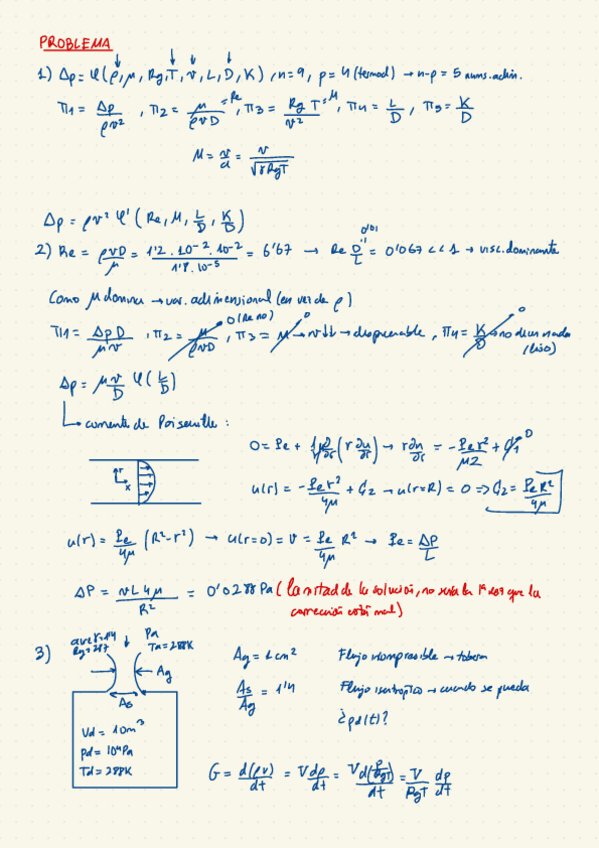 PROBLEMA
1) Δp = φ(ρ, μ, Rg, T, v, L, D, K), n=9, p=4 (termod) → n-p = 5 nums. adim.
Π1 = Δp/ρv², Π2 = μ/ρvD = Re, Π3 = Rg T/v² = M, Π4 = L/D, Π5 = K/D
M = v/a = v/√γRgT
Δp = ρv² φ'(Re, M, L/D, K/D)
2) Re = ρvD/μ = 1'2 · 10⁻² · 10⁻²/1'8 · 10⁻⁵ = 6'67 → Re D/L = 0'067 << 1 → visc. dominante
0'01
Como μ domina → var. adimensional (en vez de ρ)
Π1 = Δp D/μv, Π2 = μ/ρvD 0 (Re no), Π3 = M 0 → v↓↓ → despreciable, Π4 = K/D 0 → no dicen nada
(liso)
Δp = μv/D φ(L/D)
→ corriente de Poiseuille:
0 = Pe + 1/r μ ∂/∂r (r ∂u/∂r) → r ∂u/∂r = -Pe r²/μ2 + C1 0
r
x
u(r) = -Pe r²/4μ + C2 → u(r=R) = 0 => C2 = Pe R²/4μ
u(r) = Pe/4μ (R²-r²) → u(r=0) = v = Pe/4μ R² → Pe = ΔP/L
ΔP = vL4μ/R² = 0'0288 Pa (la mitad de la solución, no sería la 1ª vez que la
corrección está mal)
3)
Pa
Rg=287 Ta=288K
Ag
As
Vd = 10m³
Pd = 10⁴Pa
Td = 288K
Ag = 1cm² Flujo incompresible → tobera
As/Ag = 1'4 Flujo isentrópico → cuando se pueda
¿pd(t)?
G = d(ρV)/dt = V dρ/dt = V d(P/RgT)/dt = V/RgT dp/dt